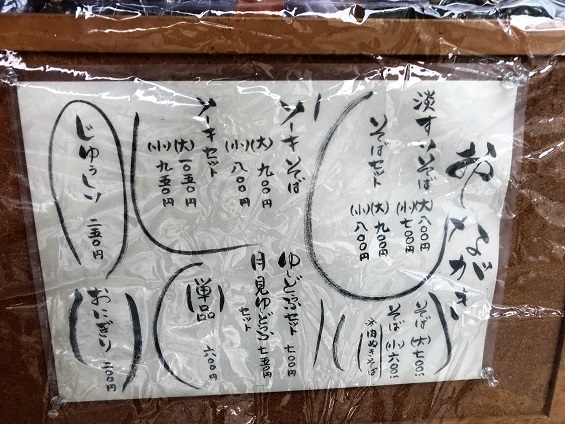 おしながき
淡すいそば (大) 八〇〇円
(小) 七〇〇円
そばセット (大) 九〇〇円
(小) 八〇〇
そば (大) 七〇〇円
そば (小) 六〇〇円
肉ぬきそば
ソーキそば (大) 九〇〇円
(小) 八〇〇円
ソーキセット (大) 一〇五〇円
(小) 九五〇円
ゆしどうふセット 七〇〇円
月見ゆしどうふ
セット 七五〇円
(単品) 六〇〇円
じゅうしい 二五〇円
おにぎり 二〇〇円